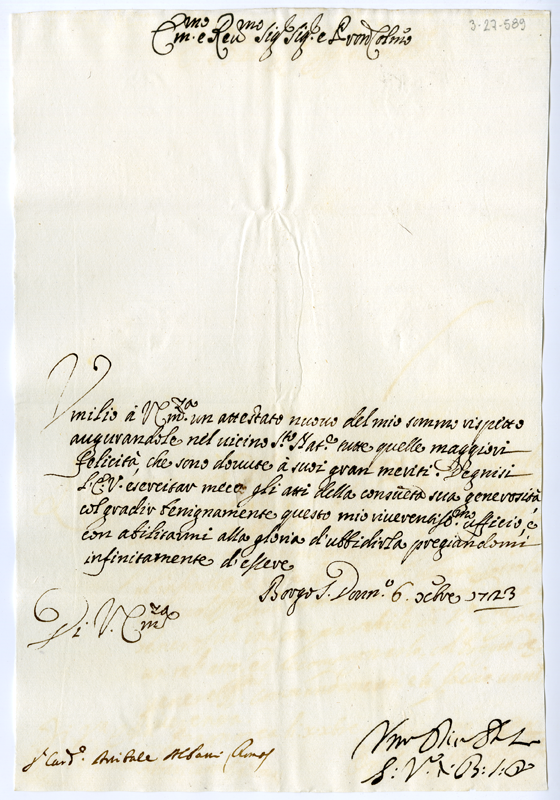 3-27-589
Em.mo e Rev.mo Sig.r Sig.r e Pron Colmo
Umilio à V. Em.za un attestato nuovo del mio sommo rispetto
augurandole nel vicino S.to Nat.e tutte quelle maggiori
felicità, che sono dovute à suoi gran meriti. Degnisi
l'E.V. esercitar meco gli atti della consueta sua generosità
col gradir benignamente questo mio riverentiss.mo ufficio, é
con abilitarmi alla gloria d'ubbidirla pregiandomi
infinitamente d'essere
Borgo S. Donn.o 6. Xbre 1723
Di V. Em.za
S.r Card.e Anibale Albani